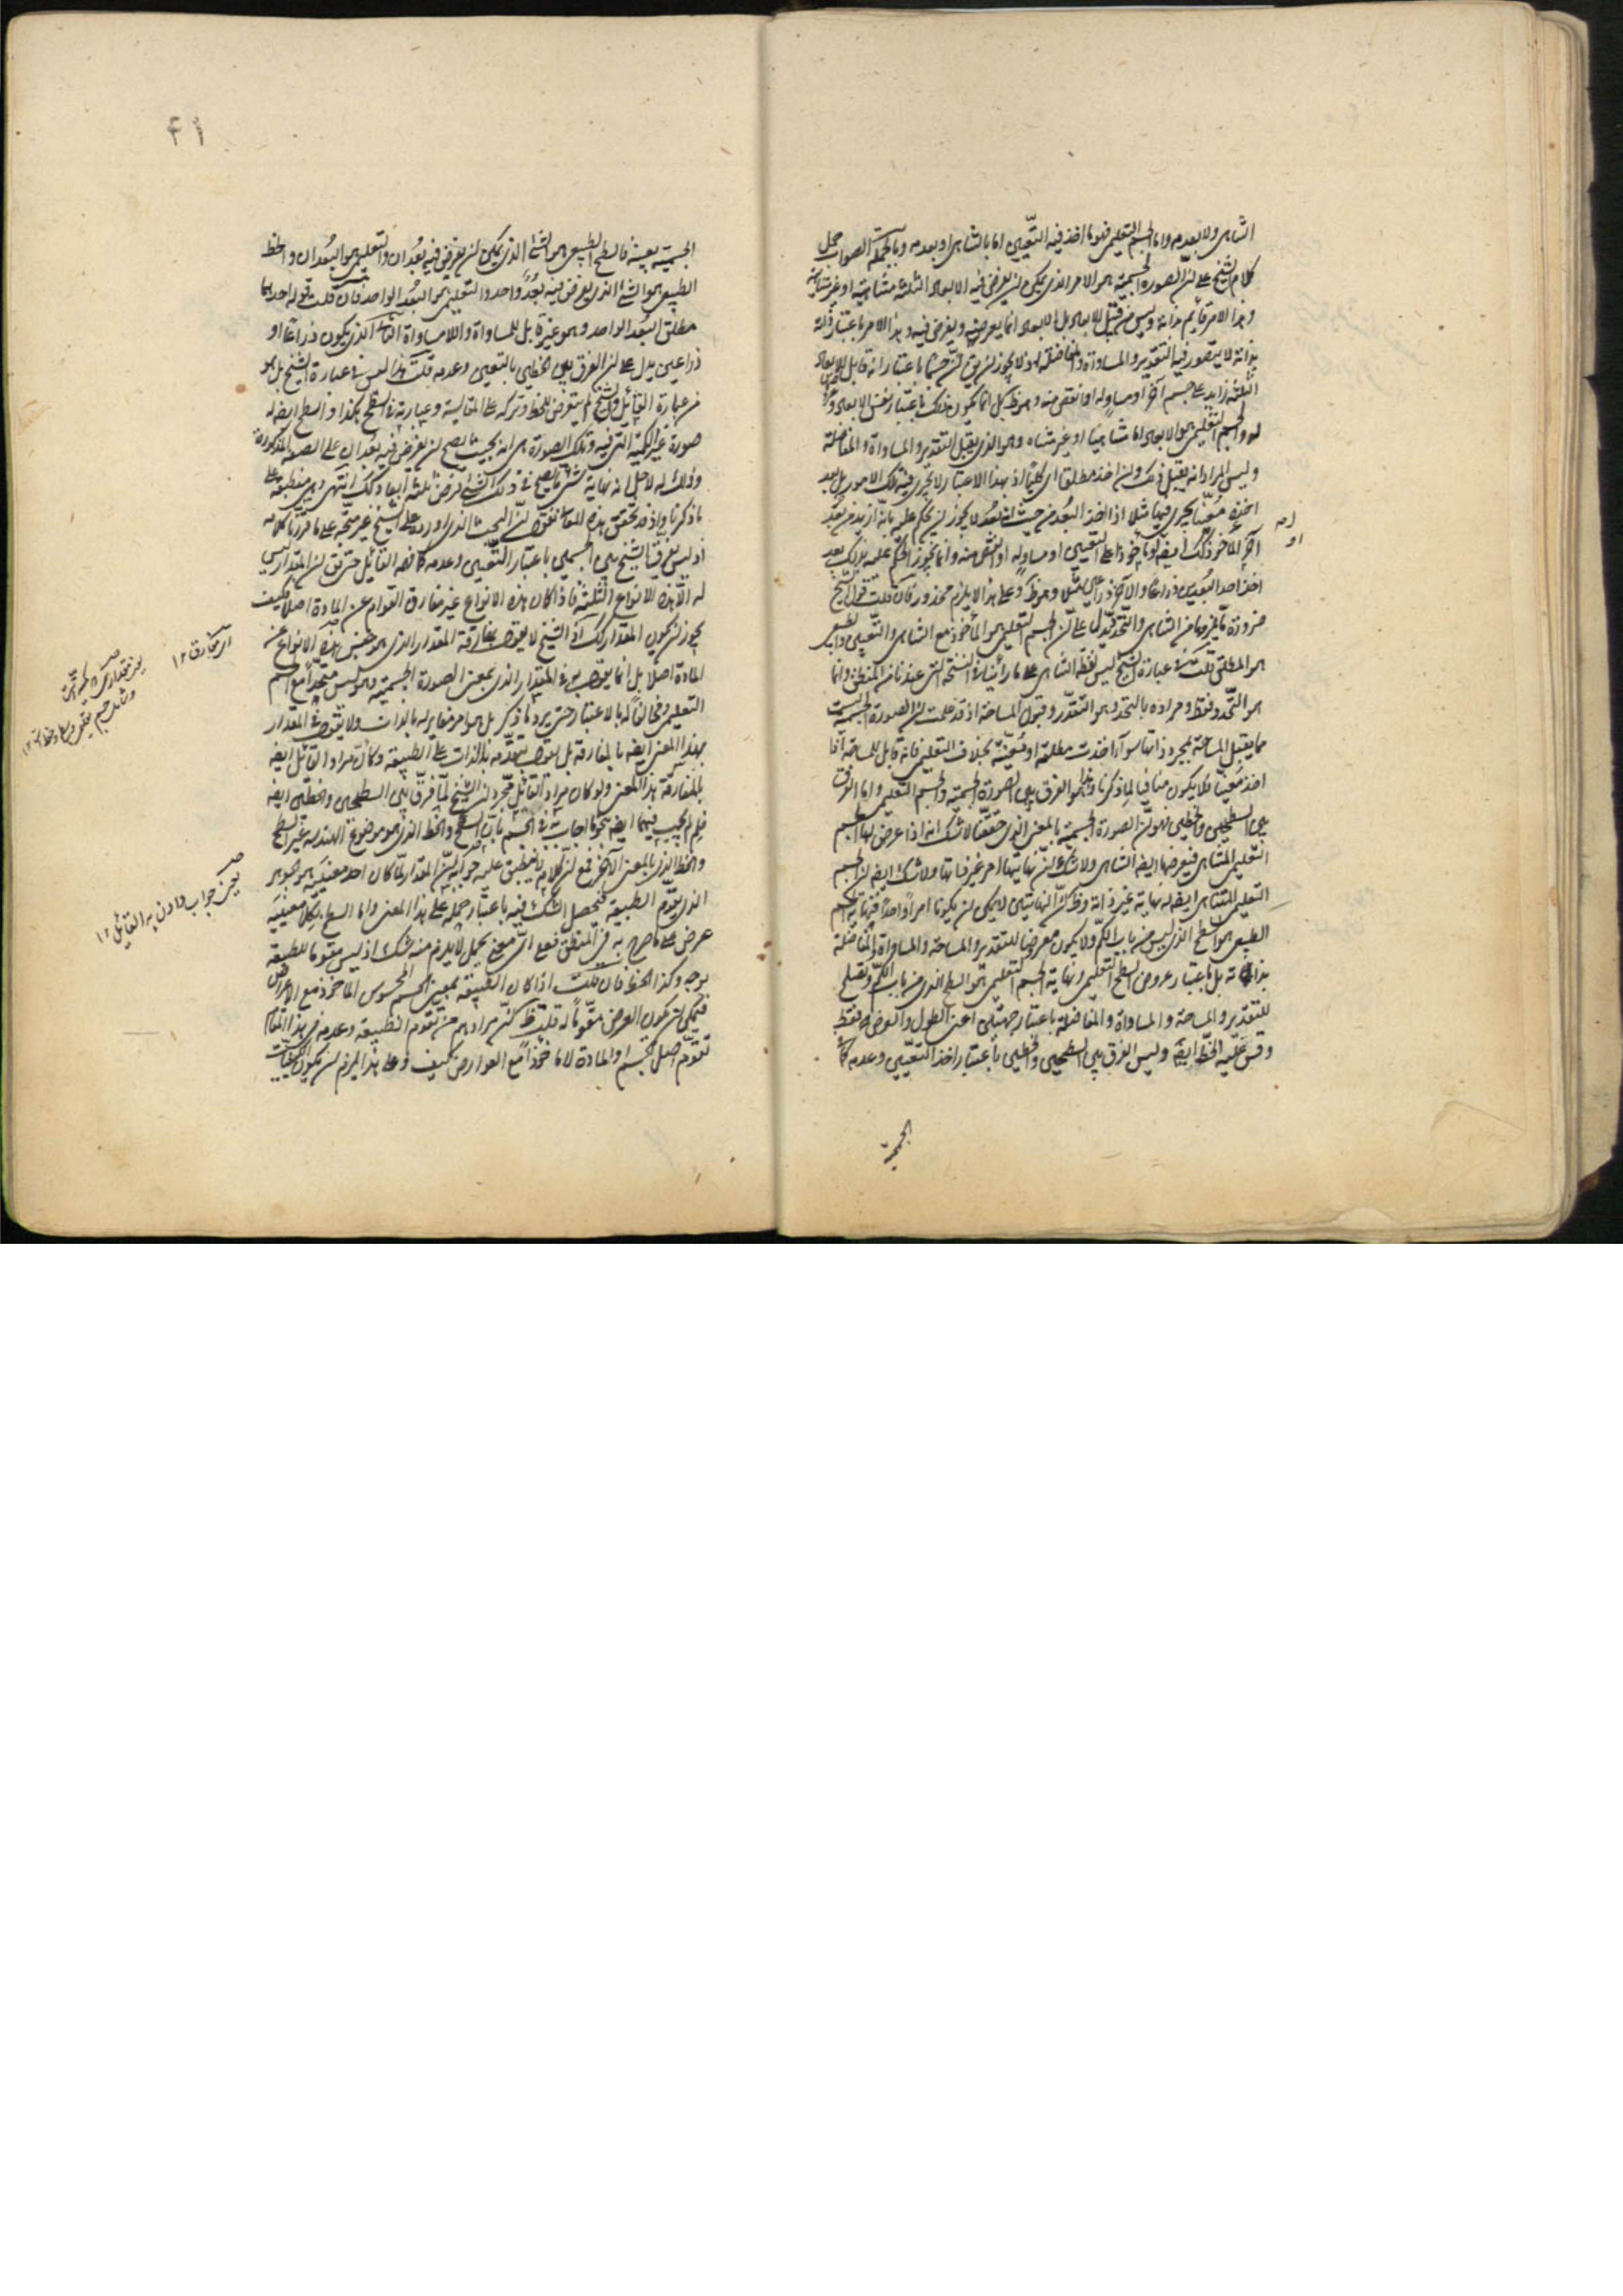 التناهى ولا بعدمه واما الجسم التعليمى فهو ما اخذ فيه التعيين اما بالتناهى او بعدمه وبالجملة الصواب حمل
كلام الشيخ على ان الصورة الجسمية هو الامر الذى يمكن ان يفرض فيه الابعاد الثلثة متناهية او غير متناهية
وهذا الامر قائم بذاته وليس من قبيل الابعاد بل الابعاد انما يعرضه ويفرض فيه وهذا الامر باعتبار ذاته
بذاته لا يتصور فيه التقدير والمساواة والمفاضلة اذ لا يجوز ان يق ان جسما باعتبار انه قابل للابعاد
الثلثة زايد على جسم آخر او مساو له او انقص منه وهو ظ بل انما يكون ذلك باعتبار نفس الابعاد
له والجسم التعليمى هو الابعاد اما متناهيا او غير متناه وهو الذى يقبل التقدير والمساواة والمفاضلة
وليس المراد انه يقبل ذلك وان اخذ مطلقا اى كليا اذ بهذا الاعتبار لا يجرى فيه تلك الامور بل بعد
اخذه معينا يجرى فيها مثلا اذا اخذ البعد من حيث انه بعد لا يجوز ان يحكم عليه بانه ازيد من بعد
آخر الماخوذ كك ايضا لو ماخوذا على التعيين او مساو له او انقص منه وانما يجوز الحكم عليه بذلك بعد
اخذ احد البعدين ذراعا والآخر ذراعين مثلا وهو ظ وعلى هذا لا يلزم محذور فان قلت قول الشيخ
ضرورة تلزمها من التناهى والتحدد يدل على ان الجسم التعليمى هو الماخوذ مع التناهى والتعيين والطبيعى
هو المطلق قلت فى عبارة الشيخ ليس لفظ التناهى على ما رأينا فى النسخة التى عندنا من المنطق وانما
هو التحدد فقط ومراده بالتحدد هو التقدر وقبول المساحة اذ قد علمت ان الصورة الجسمية ليست
مما يقبل المساحة بمجرد ذاتها سواء اخذت مطلقة او معينة بخلاف التعليمى فانه قابل للمساحة اذا
اخذ معينا فلا يكون منافيا لما ذكرنا وهذا هو الفرق بين الصورة الجسمية والجسم التعليمى واما الفرق
بين السطحين والخطين فهو ان الصورة الجسمية بالمعنى الذى حققنا لا شك انه اذا عرض لها الجسم
التعليمى المتناهى فيعرضها ايضا التناهى ولا شك ان نهايتها امر غير ذاتها ولا شك ايضا ان الجسم
التعليمى المتناهى ايضا له نهاية غير ذاته وظ ان النهايتين لا يمكن ان يكونا امرا واحدا فنهاية الجسم
الطبيعى هو السطح الذى ليس من باب الكم ولا يكون معروضا للتقدير والمساحة والمساواة والمفاضلة
بذاته بل باعتبار عروض السطح التعليمى ونهاية الجسم التعليمى هو السطح الذى من باب الكم ويصلح
للتقدير والمساحة والمساواة والمفاضلة باعتبار جهتين اعنى الطول والعرض فقط
وقس عليه الخط ايضا وليس الفرق بين السطحين والخطين باعتبار اخذ التعيين وعدمه كما
الجسمية
الجسمية بعينه فالسطح الطبيعى هو الشئ الذى يمكن ان يفرض فيه بعدان والتعليمى هو البعدان والخط
الطبيعى هو الشئ الذى يفرض فيه بعد واحد والتعليمى هو البعد الواحد فان قلت قوله احدهما
مطلق البعد الواحد وهو غير قابل للمساواة واللامساواة الذى يكون ذراعا او
ذراعين يدل على ان الفرق بين الخطين بالتعيين وعدمه قلت هذا ليس فى عبارة الشيخ بل هو
من عبارة القائل والشيخ لم يتعرض للخط وتركه على المقايسة وعبارته فى السطح هكذا والسطح ايضا له
صورة غير الكمية التى فيه وتلك الصورة هى انه بحيث يصح ان يفرض فيه بعدان على الصفة المذكورة
وذلك له لاجل انه نهاية شئ يصح فى ذلك الشئ فرض ثلثة ابعاد كك انتهى وهى منطبقة على
ما ذكرنا واذ قد تحقق هذه فنقول ان البحث الذى اورده على الشيخ غير متجه على ما قررنا كلامه
اذ ليس يفرق الشيخ بين الجسمين باعتبار التعيين وعدمه كما فهمه القائل حتى يق ان المقدار ليس
له الا هذه الانواع الثلثة فاذا كان هذه الانواع غير مفارق القوام عن المادة اصلا فكيف
يجوز ان يكون المقدار كك اذ الشيخ لا يقول بمفارقة المقدار الذى هو جنس هذه الانواع عن
المادة اصلا بل انما يقول بها فى المقدار الذى بمعنى الصورة الجسمية وهو ليس متحدا مع الجسم
التعليمى ومخالفا له بالاعتبار حتى يرد ما ذكر بل هو امر مغاير له بالذات ولا يقول فى المقدار
بهذا المعنى ايضا بالمفارقة بل يقول بتقدمه بالذات على الطبيعة وكان مراد القائل ايضا
بالمفارقة هذا المعنى ولو كان مراد القائل مجرد ان الشيخ لما فرق بين السطحين والخطين ايضا
فلم لم يجب فيهما ايضا بنحو ما اجاب به فى الجسم بان السطح والخط الذى هو موضوع الهندسة غير السطح
والخط الذى بالمعنى الآخر فمع ان كلامه لا ينطبق عليه فجوابه ان المقدار لما كان احد معنييه هو الجوهر
الذى يقوم الطبيعة فيحصل الشك فيه باعتبار حمله على هذا المعنى واما السطح بكلا معنييه
عرض على ما صرح به فى المنطق فعلى اى معنى يحمل لا يلزم منه شك اذ ليس مقوما للطبيعة
بوجه وكذا الخط فان قلت اذا كان الطبيعة بمعنى الجسم المحسوس الماخوذ مع الاعراض
فيمكن ان يكون العرض مقوما له قلت ظ ان مرادهم من تقوم الطبيعة وعدمه فى هذا المقام
تقوم اصل الجسم او المادة لا ماخوذا مع العوارض كيف وعلى هذا يلزم ان يكون